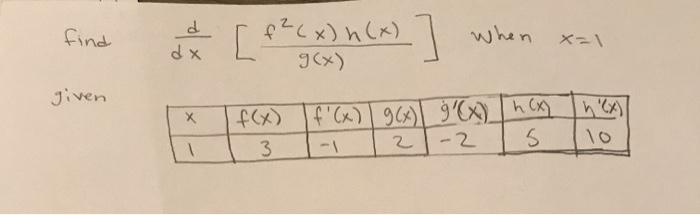 find d/dx [ f²(x)h(x) / g(x) ] when x=1
given
x f(x) f'(x) g(x) g'(x) h(x) h'(x)
1 3 -1 2 -2 5 10